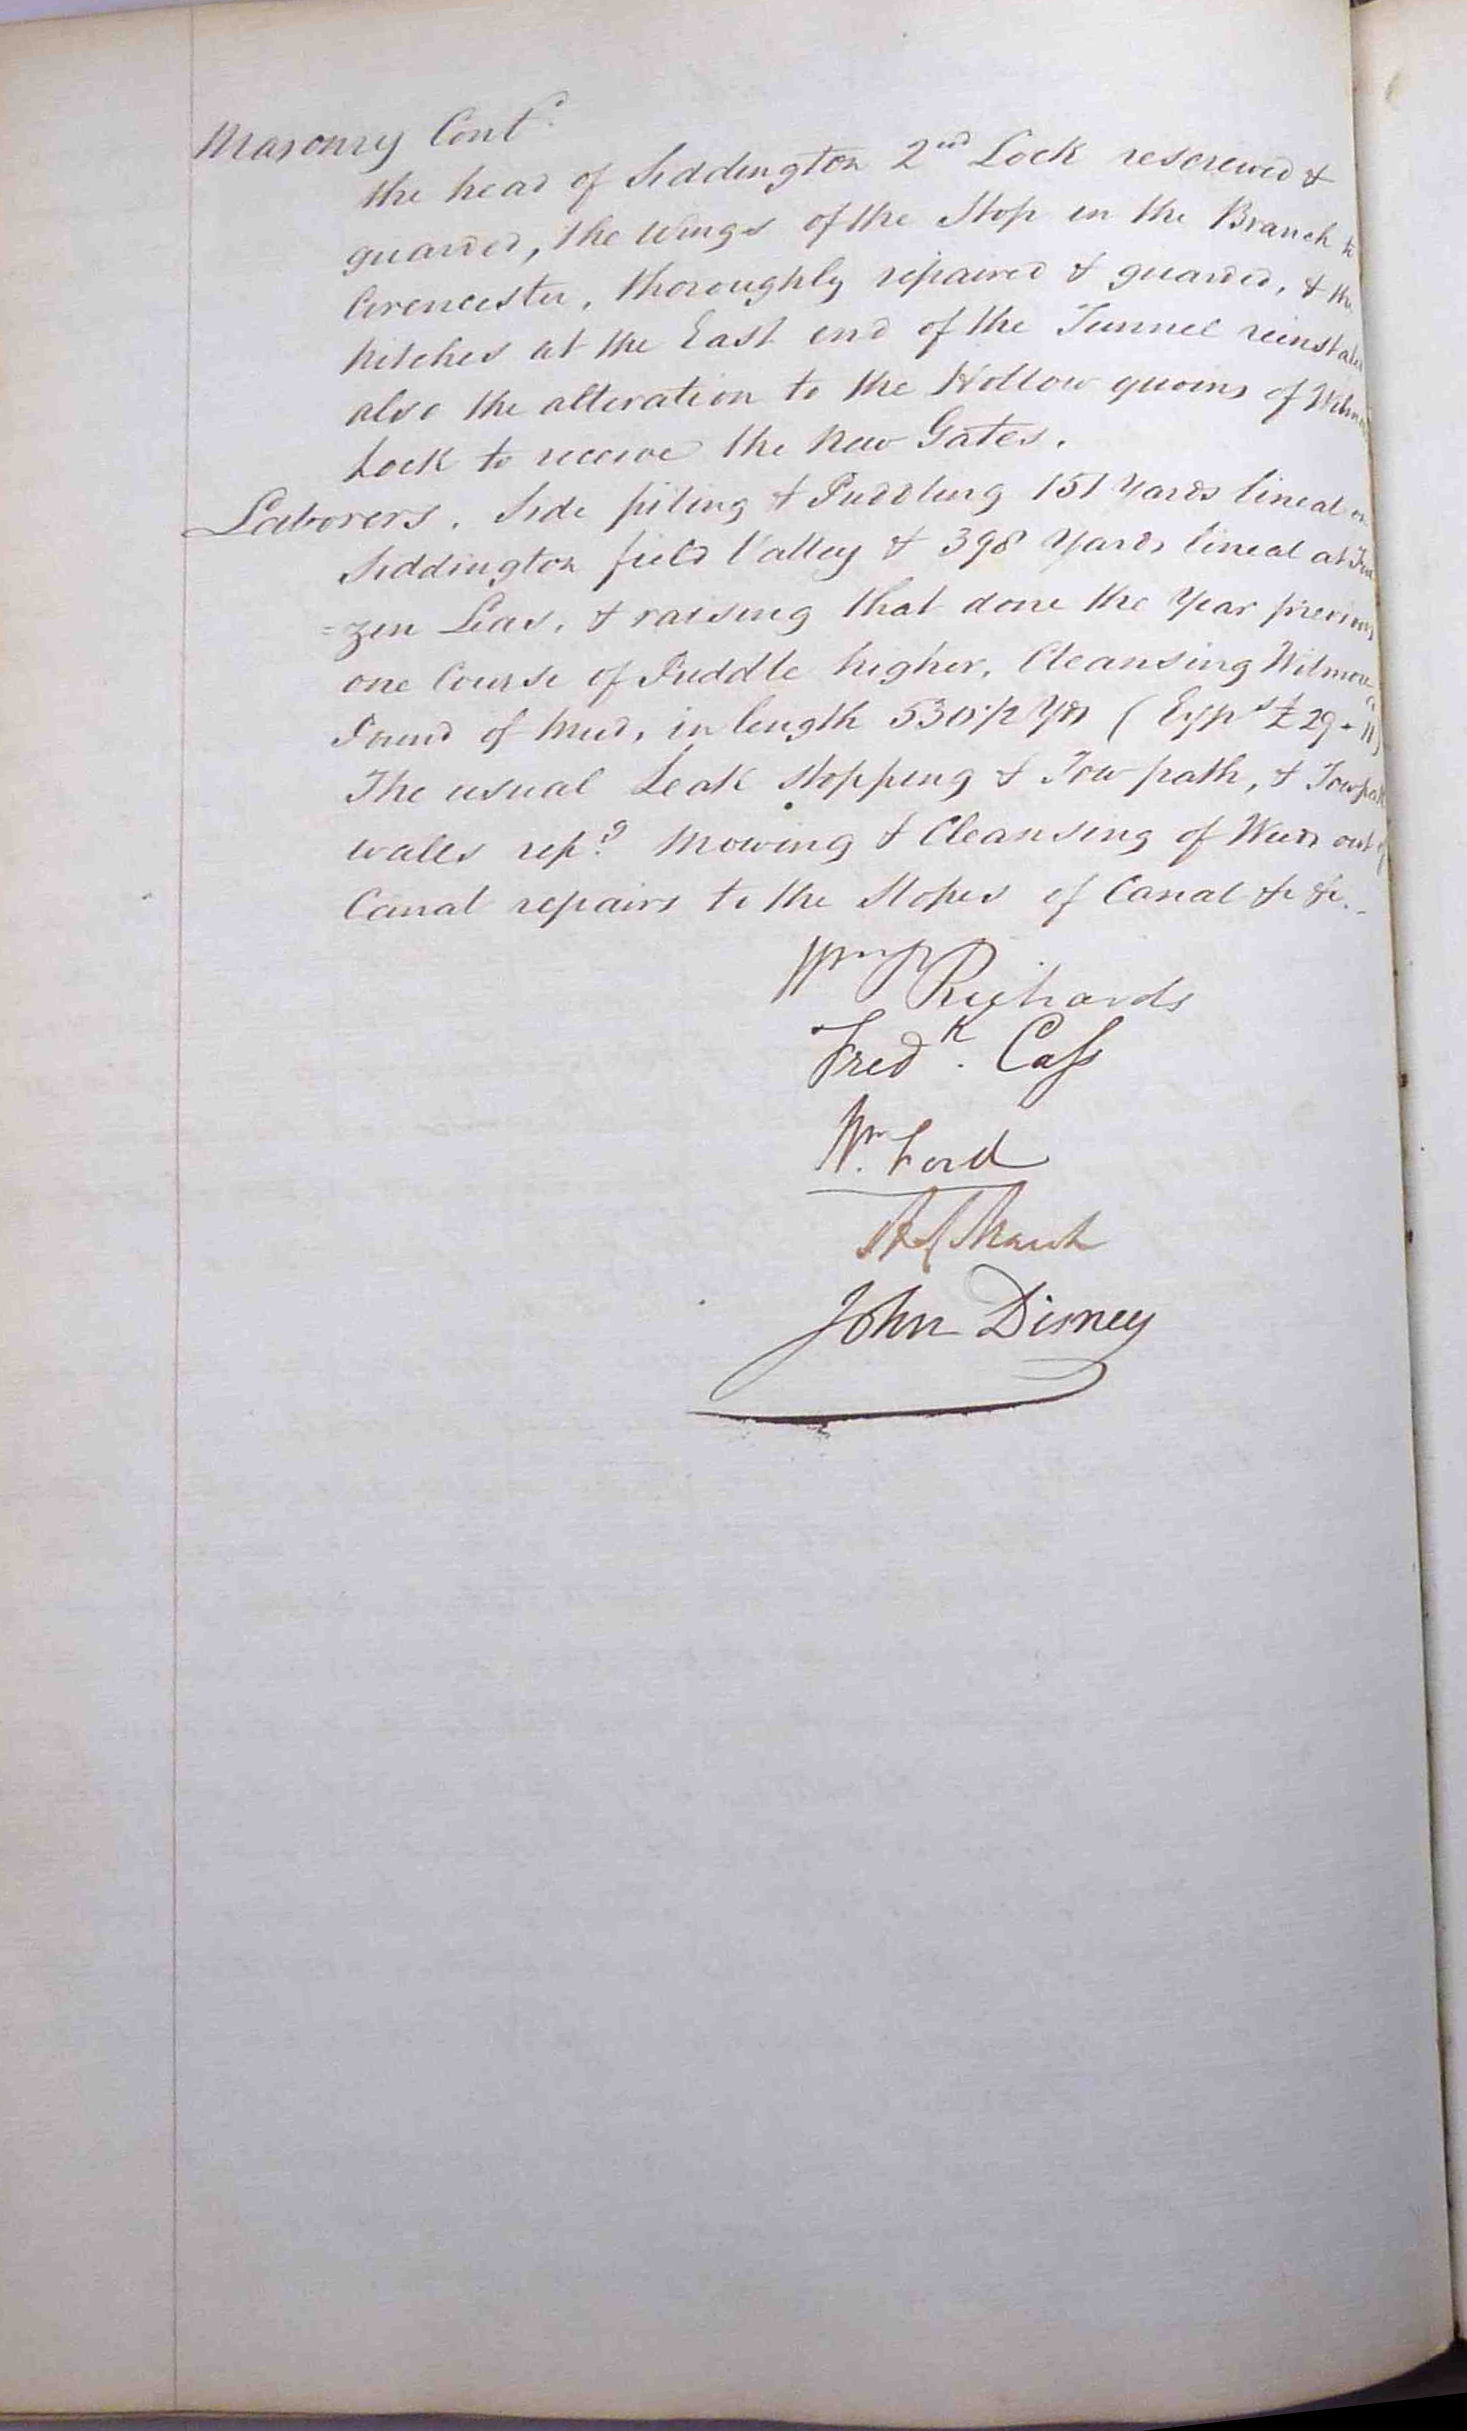 Masonry Cont.d
the head of Siddington 2nd Lock rescrewed &
guarded, the wings of the Stop in the Branch to
Cirencester, thoroughly repaired & guarded, & the
hitches at the East end of the Tunnel reinstated
also the alteration to the Hollow quoins of
Lock to receive the New Gates.
Laborers. Side piling & Puddling 151 Yards lineal on
Siddington field Valley & 398 Yards lineal at
=zen Leas, & raising that done the Year previous
one Course of Puddle higher, Cleansing
Pound of Mud, in length 530 1/2 Yds (Exps £29 - 11)
The usual Leak stopping & Towpath, & Towpath
walls rep.g Mowing & Cleansing of Weeds out of
Canal repairs to the Slopes of Canal &c &c.
Richards
Fredk. Cass
Wm. Ford
John Disney